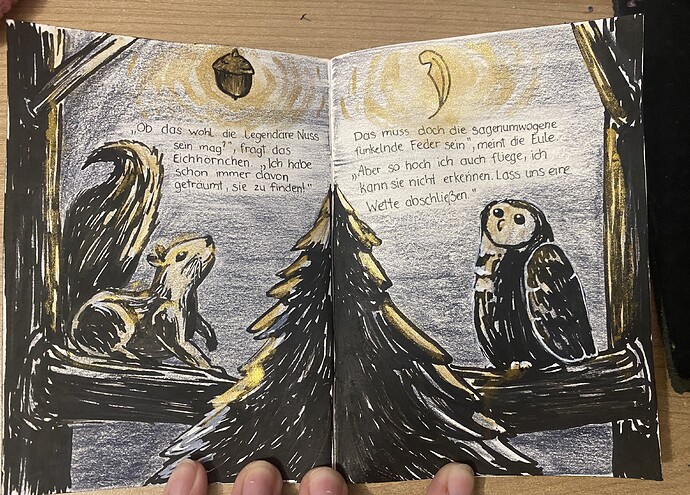 „Ob das wohl die Legendäre Nuss
sein mag?", fragt das
Eichhörnchen. „Ich habe
schon immer davon
geträumt, sie zu finden!"
Das muss doch die sagenumwogene
funkelnde Feder sein", meint die Eule.
„Aber so hoch ich auch fliege, ich
kann sie nicht erkennen. Lass uns eine
Wette abschließen."